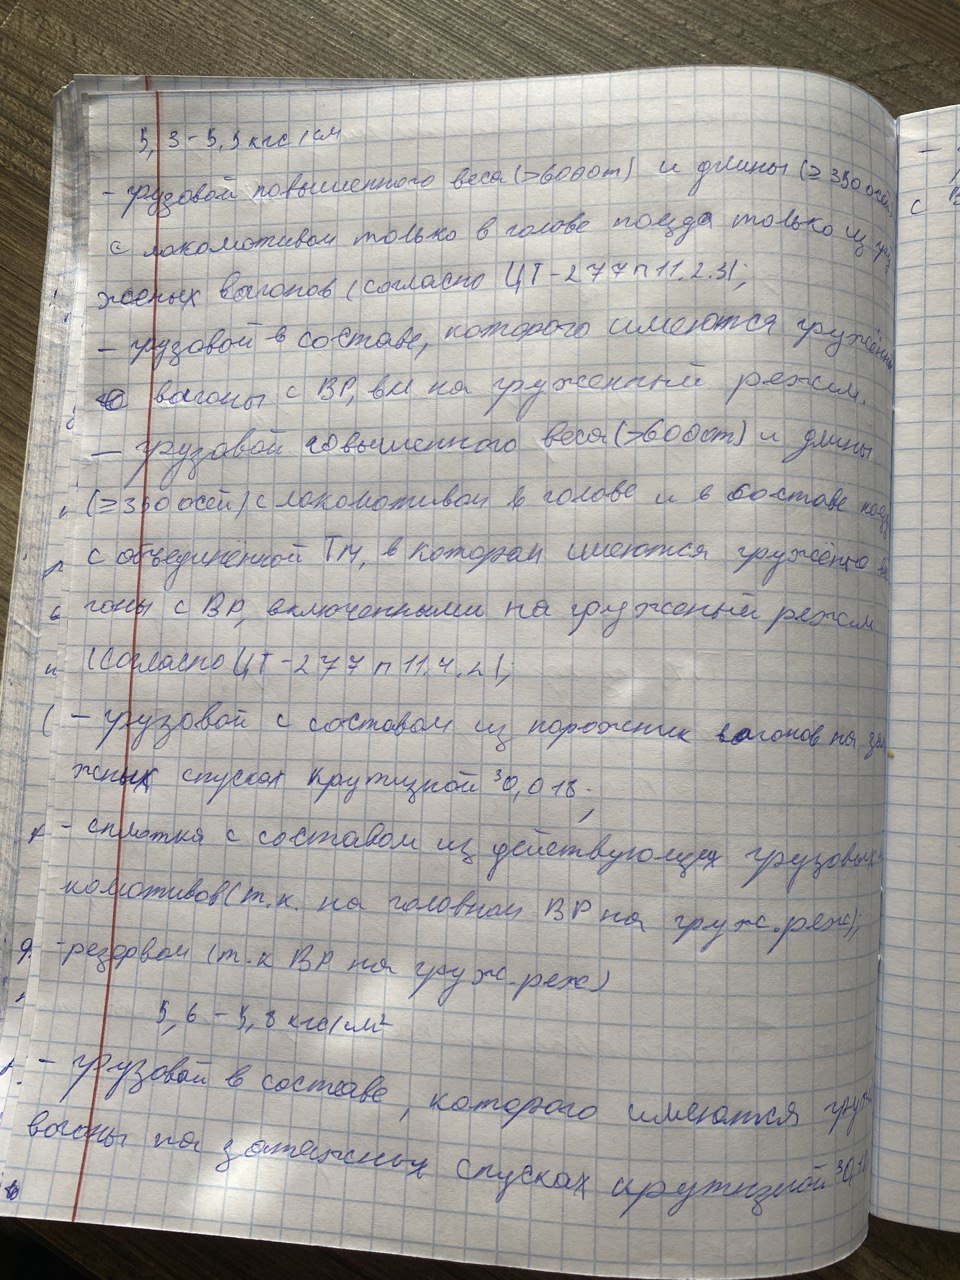 5,3-5,5 кгс/см
- грузовой повышенного веса (>6000т) и длины (≥350 осей)
с локомотивом только в голове поезда только из гру
женых вагонов (согласно ЦТ-277 п 11.2.3);
- грузовой в составе, которого имеются гружённы
е вагоны с ВР, вкл на груженный режим.
- грузовой повышенного веса (>6000т) и длины
(≥350 осей) с локомотивом в голове и в составе
с объединённой ТМ, в котором имеются гружёные ва
гоны с ВР, включенными на груженый режим
(согласно ЦТ-277 п 11.4.2);
- грузовой с составом из порожних вагонов на затя
жных спусках крутизной ³0,018;
- сплотка с составом из действующих грузовых
комотивов (т.к. на головном ВР на груж.реж);
-резервом (т.к ВР на груж.реж)
5,6-5,8 кгс/см²
- грузовой в составе, которого имеются груж
вагоны на затяжных спусках крутизной